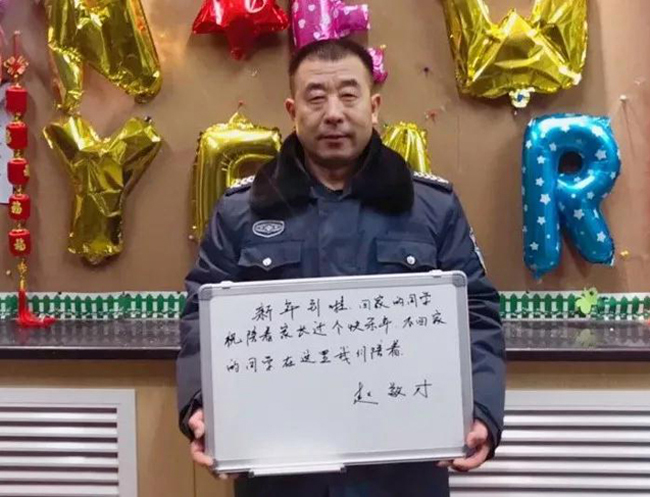 NEW
YEAR
新年到啦.回家的同学
祝陪着家长过个快乐年.不回家
的同学在这里我们陪着.
赵敬才